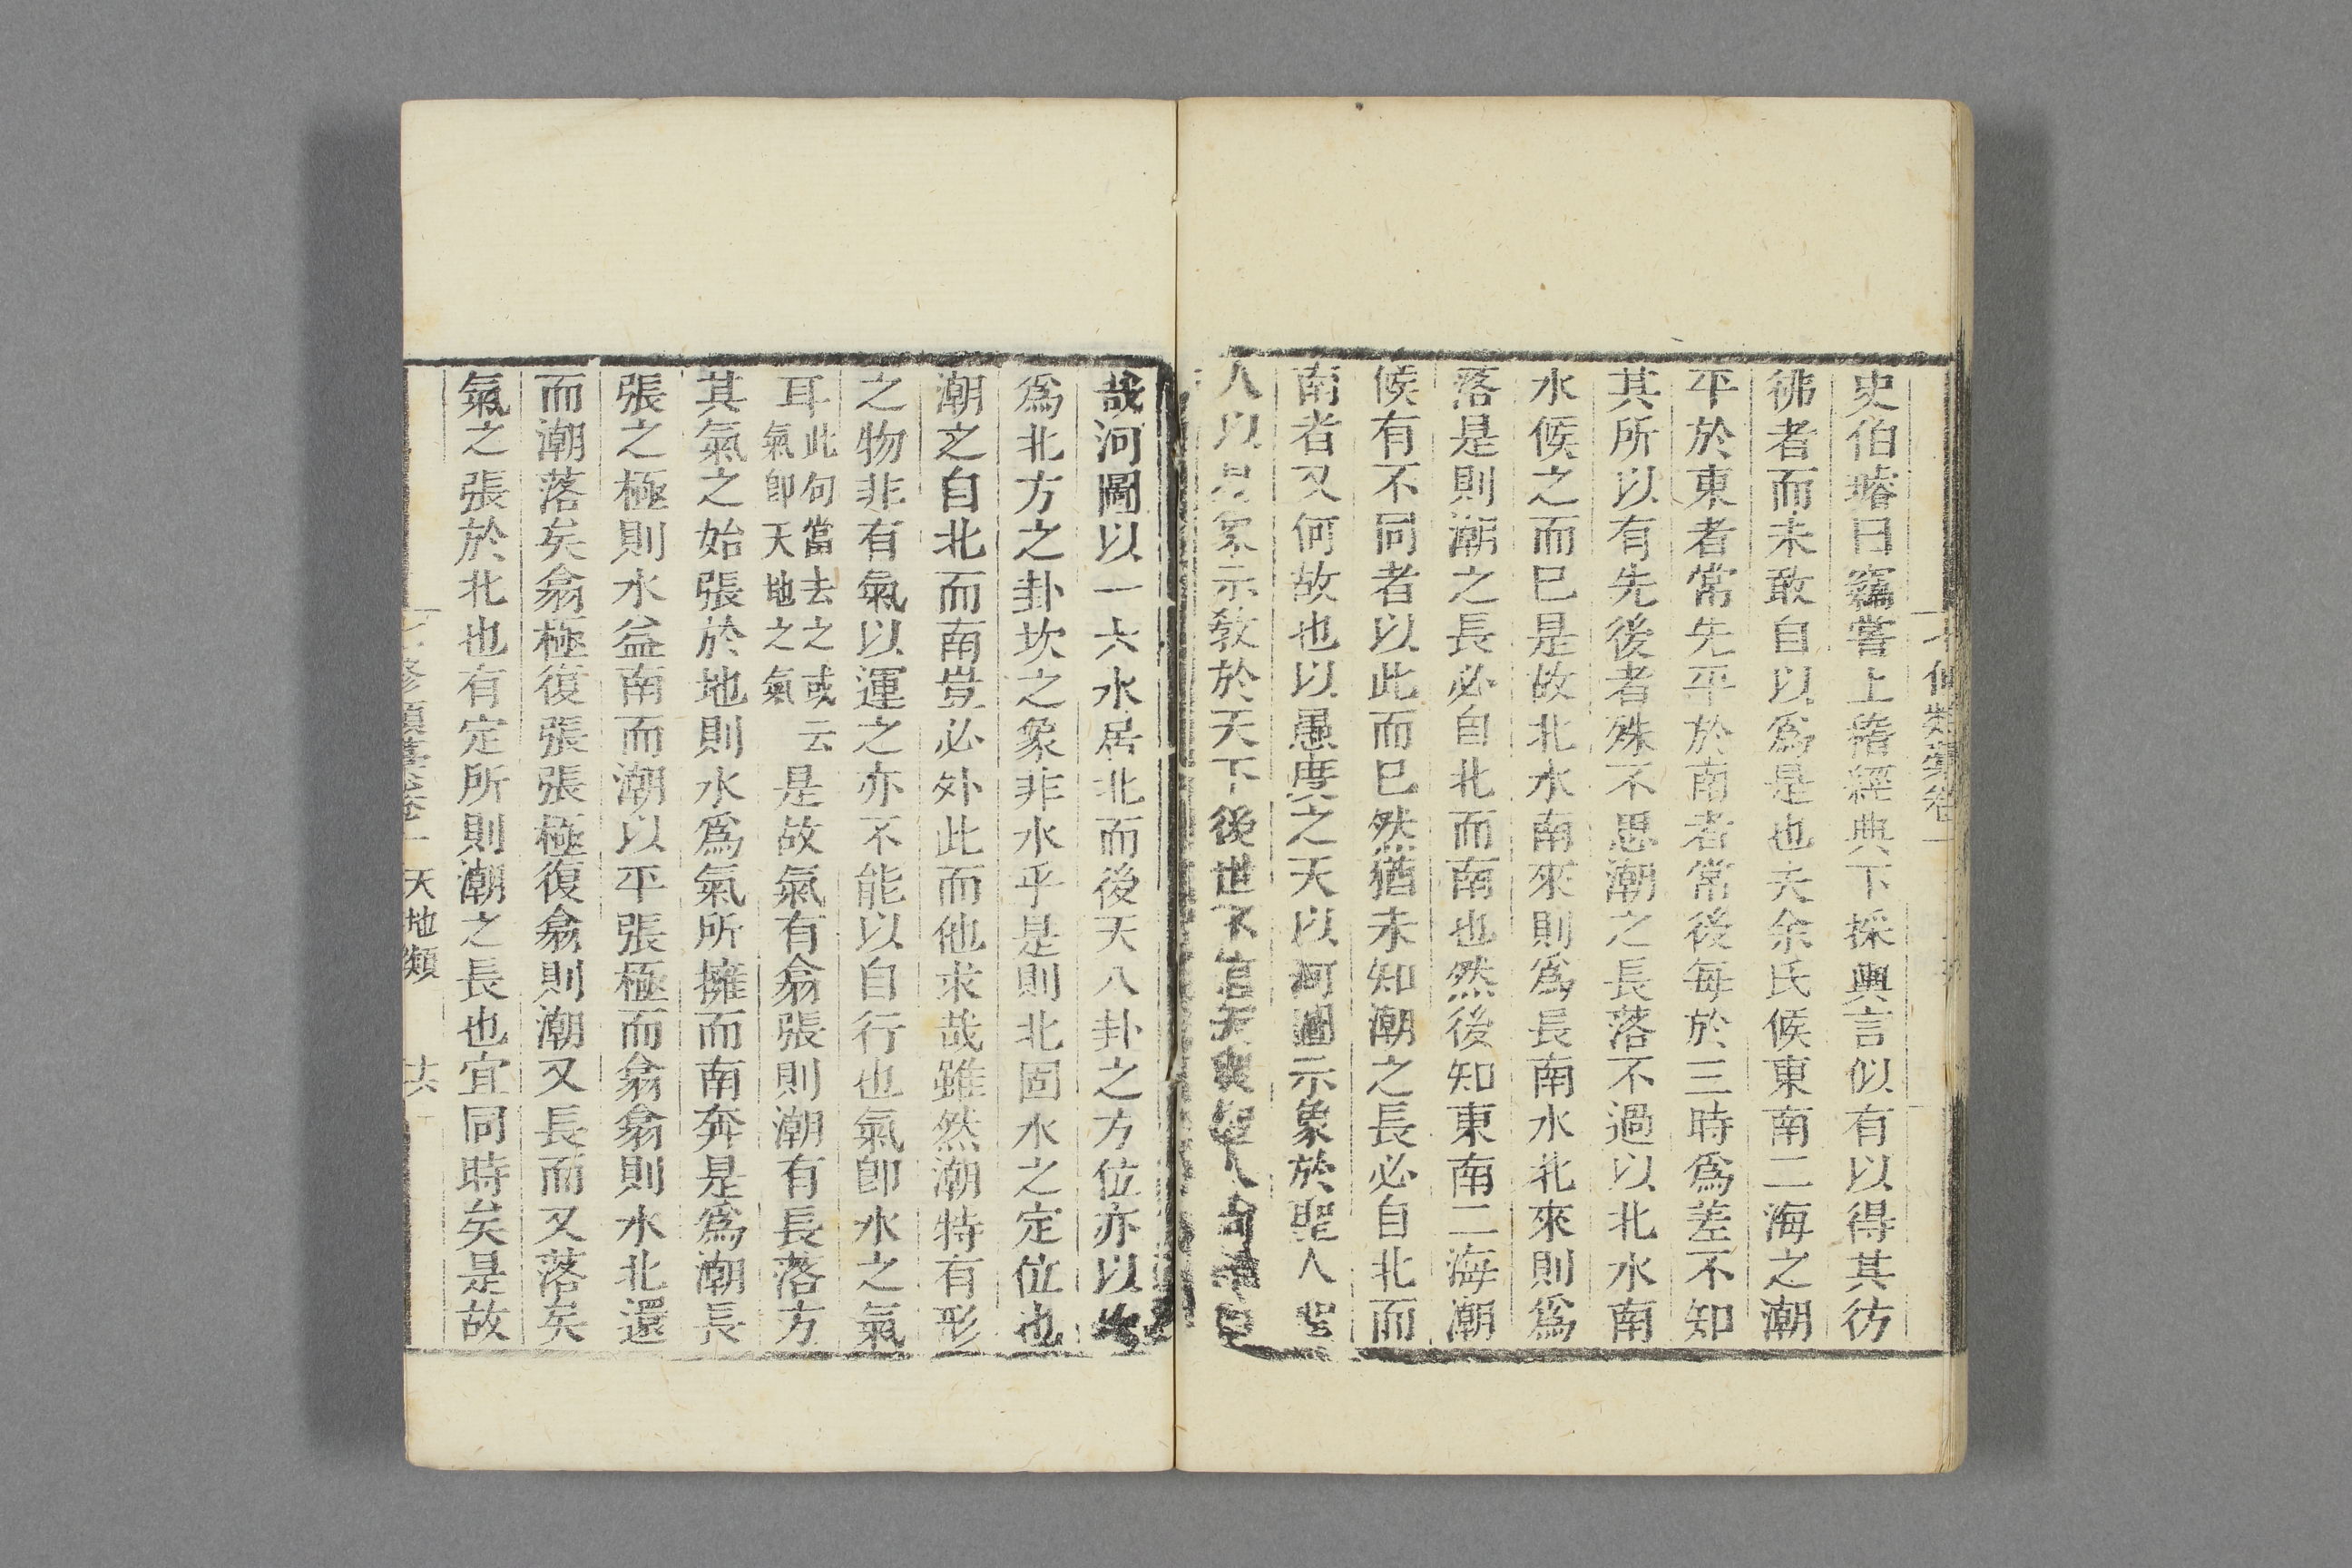 史伯璿曰竊嘗上稽經典下採輿言似有以得其彷
彿者而未敢自以爲是也夫余氏候東南二海之潮
平於東者常先平於南者常後每於三時爲差不知
其所以有先後者殊不思潮之長落不過以北水南
水候之而已是故北水南來則爲長南水北來則爲
落是則潮之長必自北而南也然後知東南二海潮
候有不同者以此而已然猶未知潮之長必自北而
南者又何故也以愚度之天以河圖示象於聖人聖
人以易象示敎於天下後世
哉河圖以一六水居北而後天八卦之方位亦以坎
爲北方之卦坎之象非水乎是則北固水之定位也
潮之自北而南豈必外此而他求哉雖然潮特有形
之物非有氣以運之亦不能以自行也氣卽水之氣
耳此句當去之或云氣卽天地之氣是故氣有翕張則潮有長落方
其氣之始張於地則水爲氣所擁而南奔是爲潮長
張之極則水益南而潮以平張極而翕翕則水北還
而潮落矣翕極復張張極復翕則潮又長而又落矣
氣之張於北也有定所則潮之長也宜同時矣是故
七修類藁卷一 天地類 十六